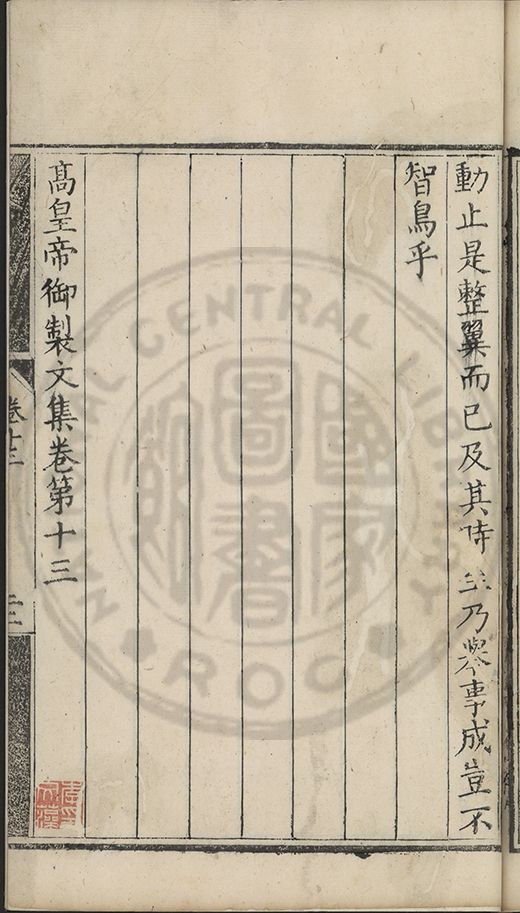 動止是整翼而已及其時至乃舉事成豈不
智鳥乎
高皇帝御製文集卷第十三
卷十三
國家圖書
NATIONAL CENTRAL LIBRARY
ROC